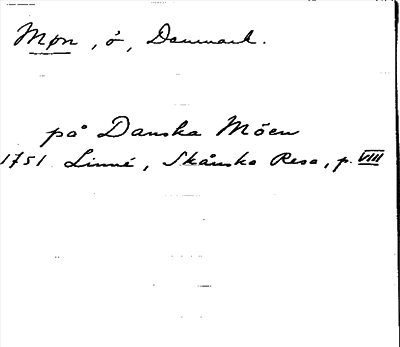 Møn, ö, Danmark.
på Danska Möen
1751 Linné, Skånska Resa, p. VIII